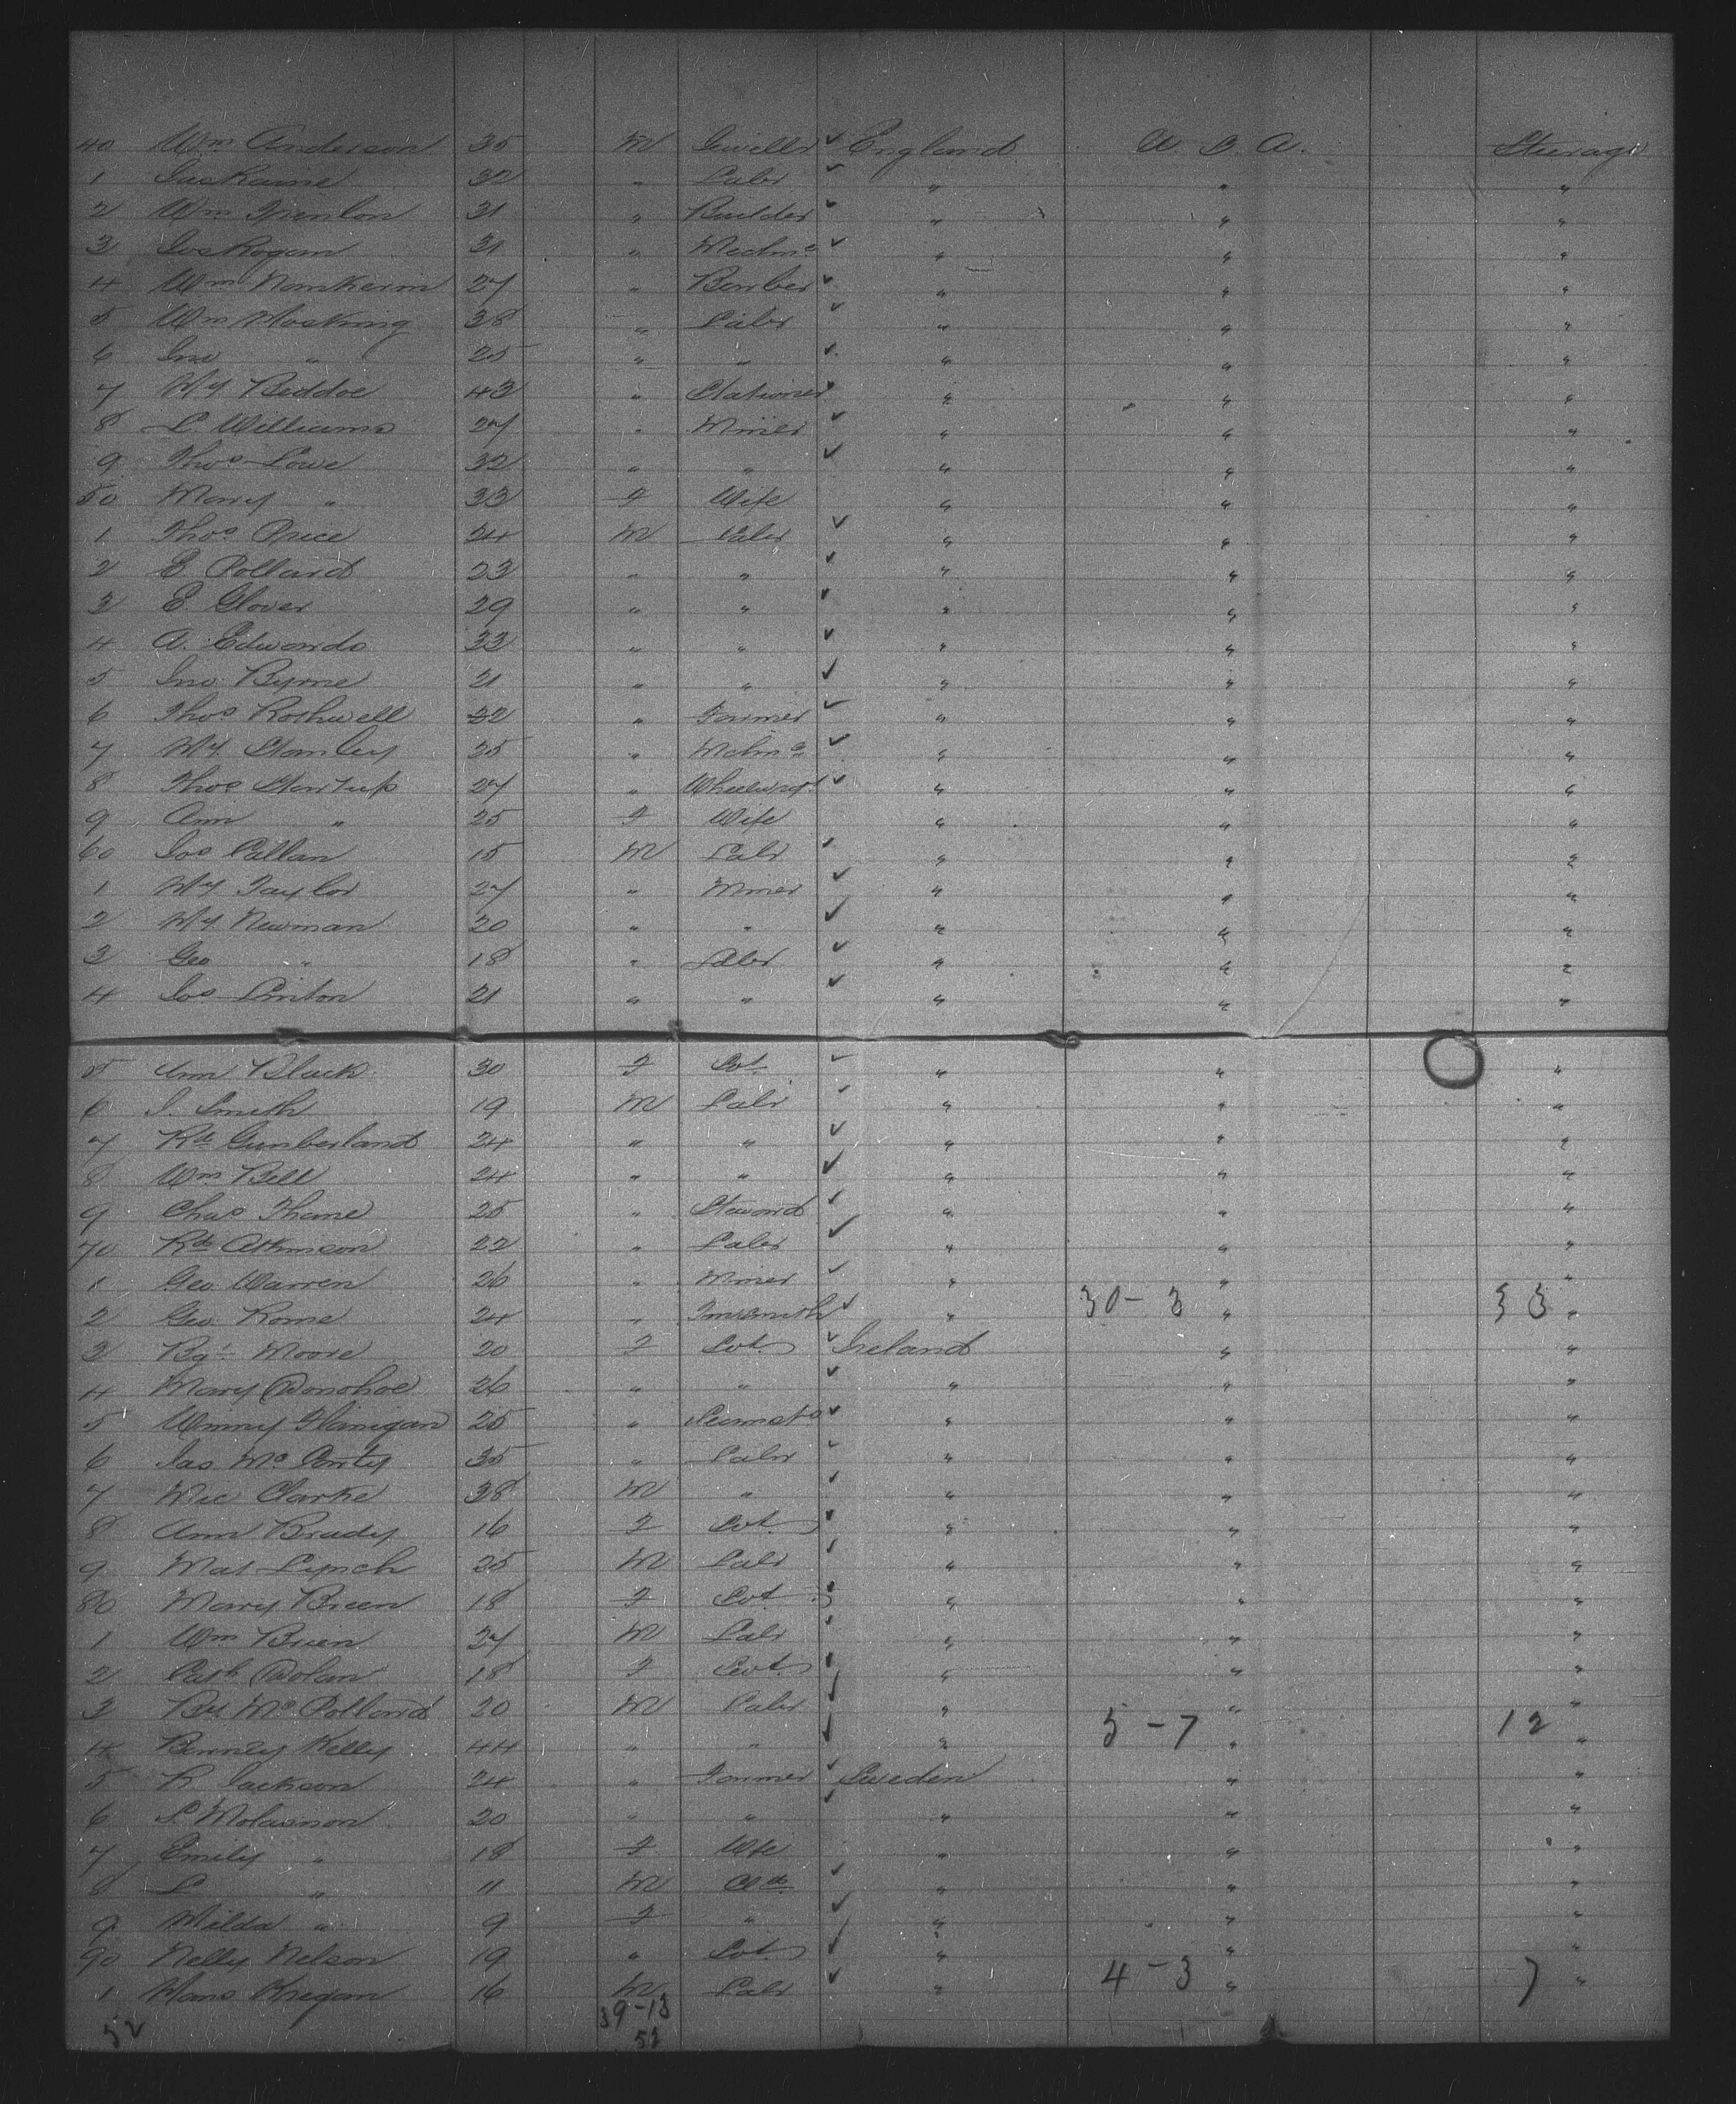 40 Wm Anderson 35 M Jeweller ✓ England U. S. A. Steerage
1 Jas Kame 32 " Labr ✓ " " "
2 Wm Trenlon 31 " Builder ✓ " " "
3 Jos Rogan 31 " Mechnc ✓ " " "
4 Wm Nankervin 27 " Barber ✓ " " "
5 Wm Hosking 38 " Labr ✓ " " "
6 Jno " 25 " " ✓ " " "
7 Wy Beddoe 43 " Stationer ✓ " " "
8 L Williams 27 " Miner ✓ " " "
9 Thos Lowe 32 " " ✓ " " "
50 Mary " 33 F Wife " " "
1 Thos Price 24 M Labr ✓ " " "
2 E. Pollard 23 " " ✓ " " "
3 E. Glover 29 " " ✓ " " "
4 A. Edwards 33 " " ✓ " " "
5 Jno Byrne 21 " " ✓ " " "
6 Thos Rothwell 32 " Farmer ✓ " " "
7 Wy Stanley 25 " Mchnc ✓ " " "
8 Thos Startup 27 " Wheelwrgt ✓ " " "
9 Ann " 25 F Wife " " "
60 Jos Callan 15 M Labr ✓ " " "
1 Wy Taylor 27 " Miner ✓ " " "
2 Wy Newman 20 " " ✓ " " "
3 Geo " 18 " Labr ✓ " " "
4 Jos Linton 21 " " ✓ " " "
5 Ann Black 30 F Svt ✓ " " "
6 J. Smith 19 M Labr ✓ " " "
7 Rd Cumberland 24 " " ✓ " " "
8 Wm Bell 24 " " ✓ " " "
9 Chas Thane 25 " Steward ✓ " " "
70 Rd Atkinson 22 " Labr ✓ " " "
1 Geo Warren 26 " Miner ✓ " " "
30 - 3 33
2 Geo Rome 24 " Tinsmith ✓ " " "
3 Bgt Moore 20 F Svt ✓ Ireland " "
4 Mary Donohoe 26 " " ✓ " " "
5 Winny Flanigan 25 " Seamsts ✓ " " "
6 Jas Mc Genty 35 " Labr ✓ " " "
7 Mic Clarke 38 M " ✓ " " "
8 Ann Brady 16 F Svt ✓ " " "
9 Mat Lynch 25 M Labr ✓ " " "
80 Mary Breen 18 F Svt ✓ " " "
1 Wm Brien 27 M Labr ✓ " " "
2 Cath Dolan 18 F Svt ✓ " " "
3 By Mc Polland 20 M Labr ✓ " " "
5 - 7 12
4 Kelly 44 " " ✓ " " "
5 K Jackson 24 " Farmer ✓ Sweden " "
6 S. Molarinon 20 " " ✓ " " "
7 Emily " 18 F Wife " " "
8 L " 11 M Cld ✓ " " "
9 Hilda " 9 F " ✓ " " "
90 Nelly Nelson 19 " Svt ✓ " " "
4 - 3 7
1 Hans Kregan 16 M Labr ✓ " " "
39 - 13
52 52